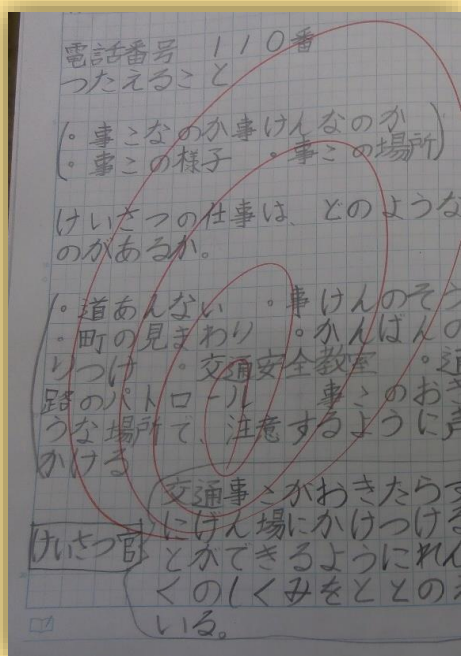 電話番号 110番
つたえること
・事こなのか事けんなのか
・事この様子 ・事この場所
けいさつの仕事は、どのような
のがあるか。
・道あんない ・事けんのそう
・町の見まわり ・かんばんの
りつけ ・交通安全教室 ・通
路のパトロール 事このおき
うな場所で、注意するように声
かける
交通事こがおきたらす
にげん場にかけつける
とができるようにれん
くのしくみをととのえ
いる。
けいさつ官